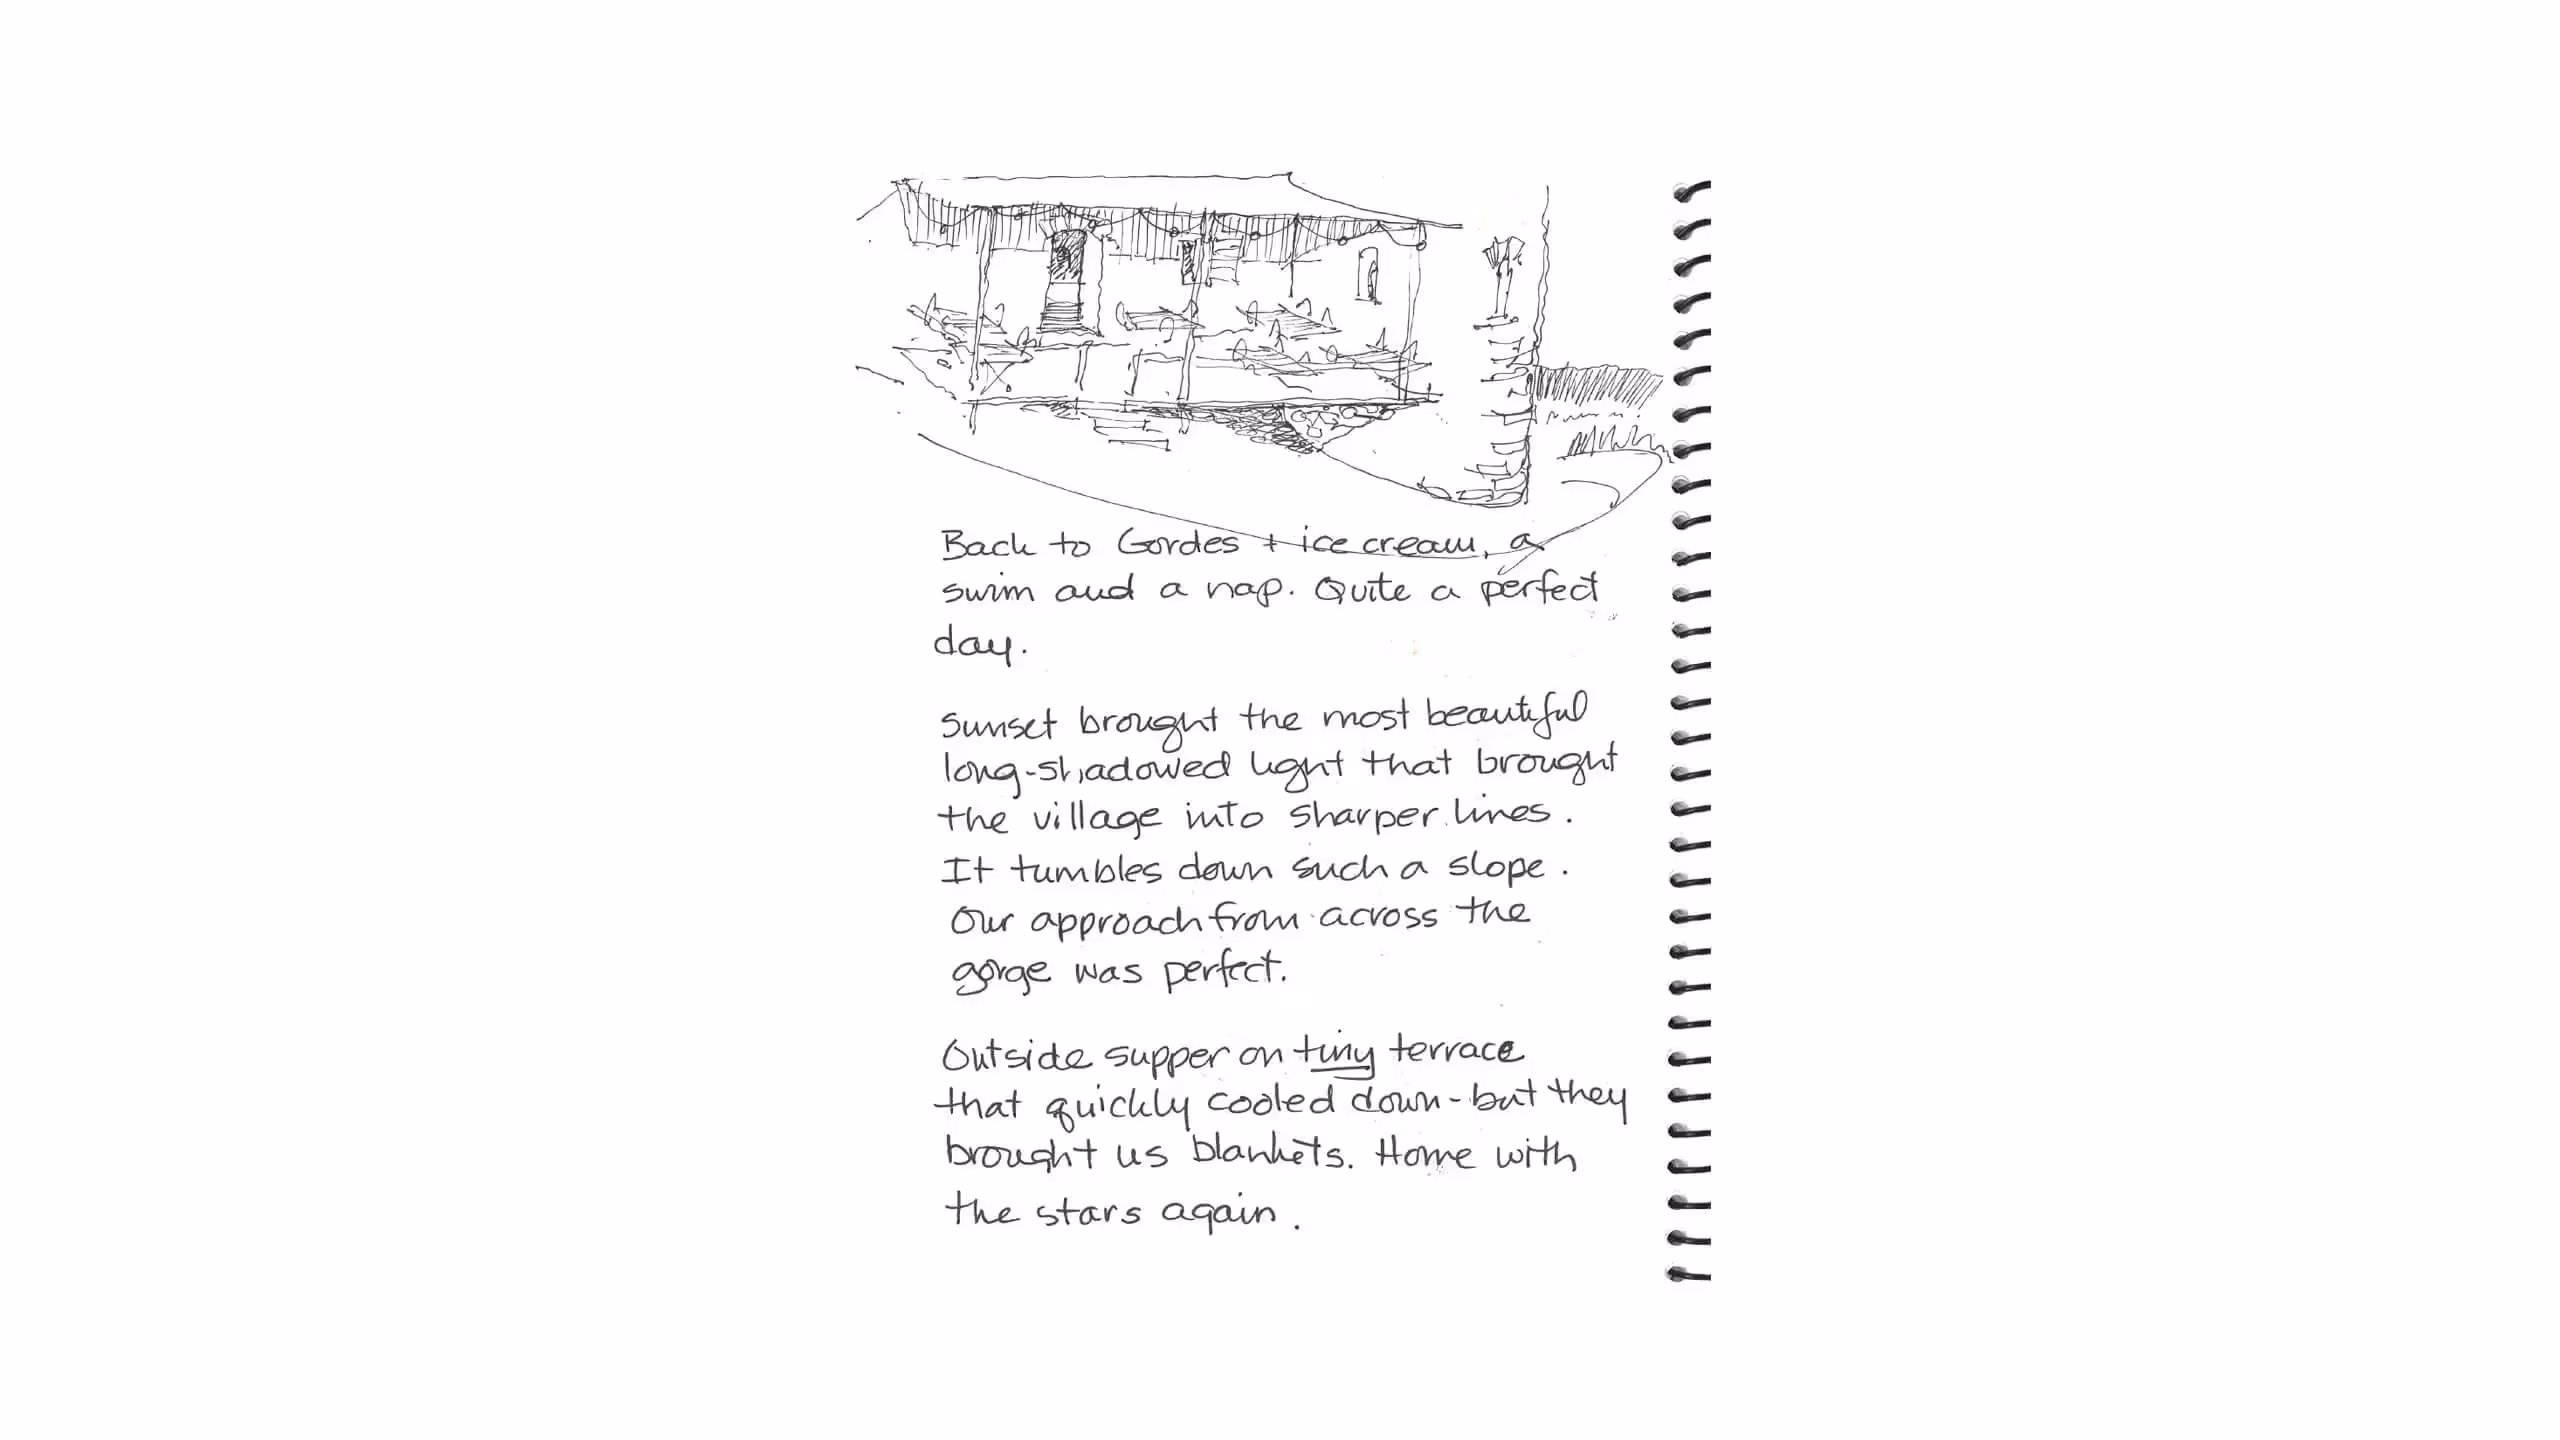 Back to Gordes + ice cream, a
swim and a nap. Quite a perfect
day.
Sunset brought the most beautiful
long-shadowed light that brought
the village into sharper lines.
It tumbles down such a slope.
Our approach from across the
gorge was perfect.
Outside supper on tiny terrace
that quickly cooled down - but they
brought us blankets. Home with
the stars again.